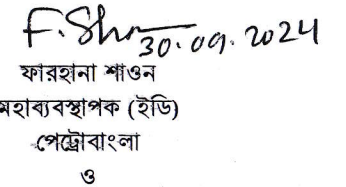 F. Sha
30.09.2024
ফারহানা শাওন
মহাব্যবস্থাপক (ইডি)
পেট্রোবাংলা
ও